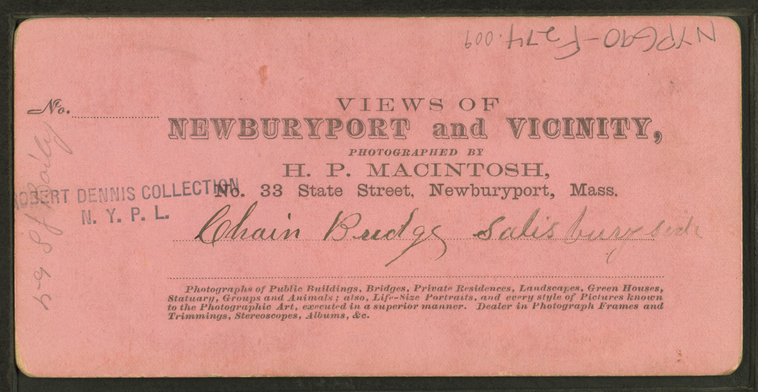 NYPG90-F274.009
No.
VIEWS OF
NEWBURYPORT and VICINITY,
PHOTOGRAPHED BY
H. P. MACINTOSH,
No. 33 State Street, Newburyport, Mass.
ROBERT DENNIS COLLECTION
N. Y. P. L.
Chain Bridge Salisbury side
Photographs of Public Buildings, Bridges, Private Residences, Landscapes, Green Houses,
Statuary, Groups and Animals; also, Life-Size Portraits, and every style of Pictures known
to the Photographic Art, executed in a superior manner. Dealer in Photograph Frames and
Trimmings, Stereoscopes, Albums, &c.